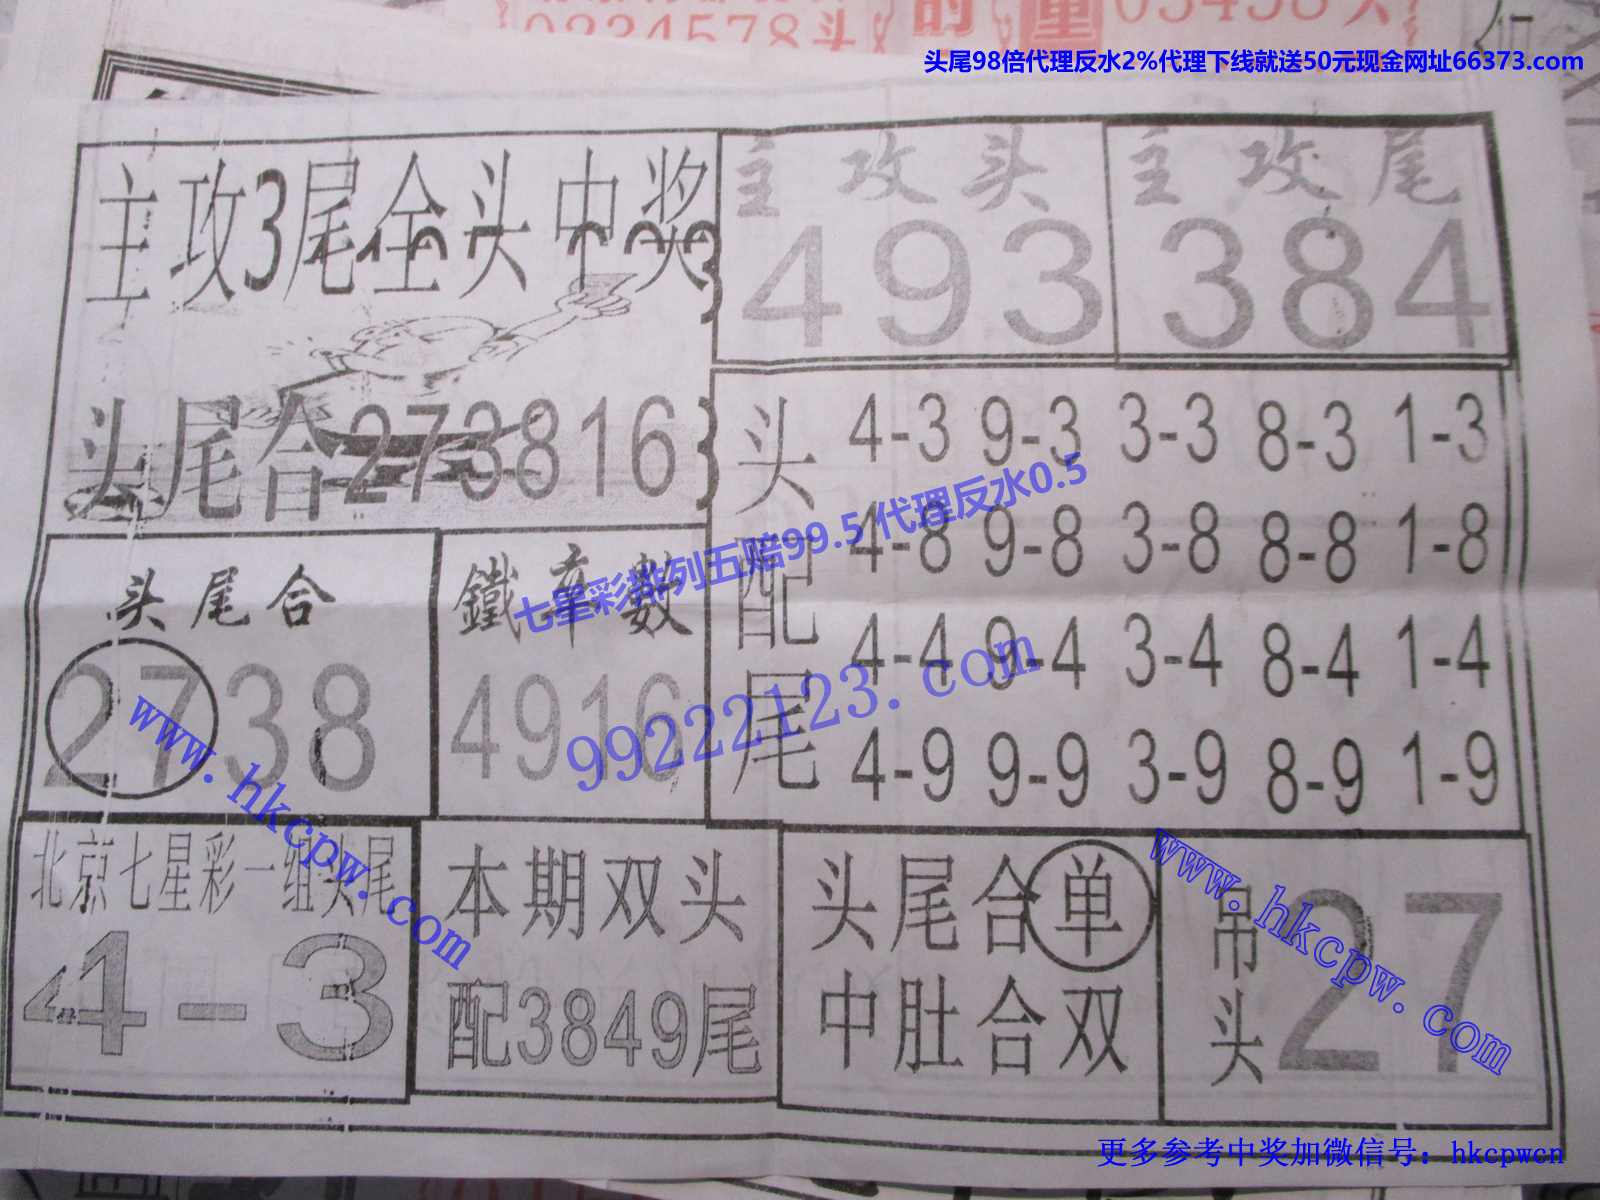 0334578头
的
重
03458头
头尾98倍代理反水2%代理下线就送50元现金网址66373.com
主攻3尾全头中奖
头尾合273816
主攻头
493
主攻尾
384
头配尾
4-3 9-3 3-3 8-3 1-3
4-8 9-8 3-8 8-8 1-8
4-4 9-4 3-4 8-4 1-4
4-9 9-9 3-9 8-9 1-9
七星彩排列五赔99.5 代理反水0.5
99222123.com
头尾合
2738
鐵率數
4916
www.hkcpw.com
北京七星彩一组头尾
4-3
本期双头
配3849尾
头尾合单
中肚合双
吊头
27
www.hkcpw.com
更多参考中奖加微信号：hkcpwcn